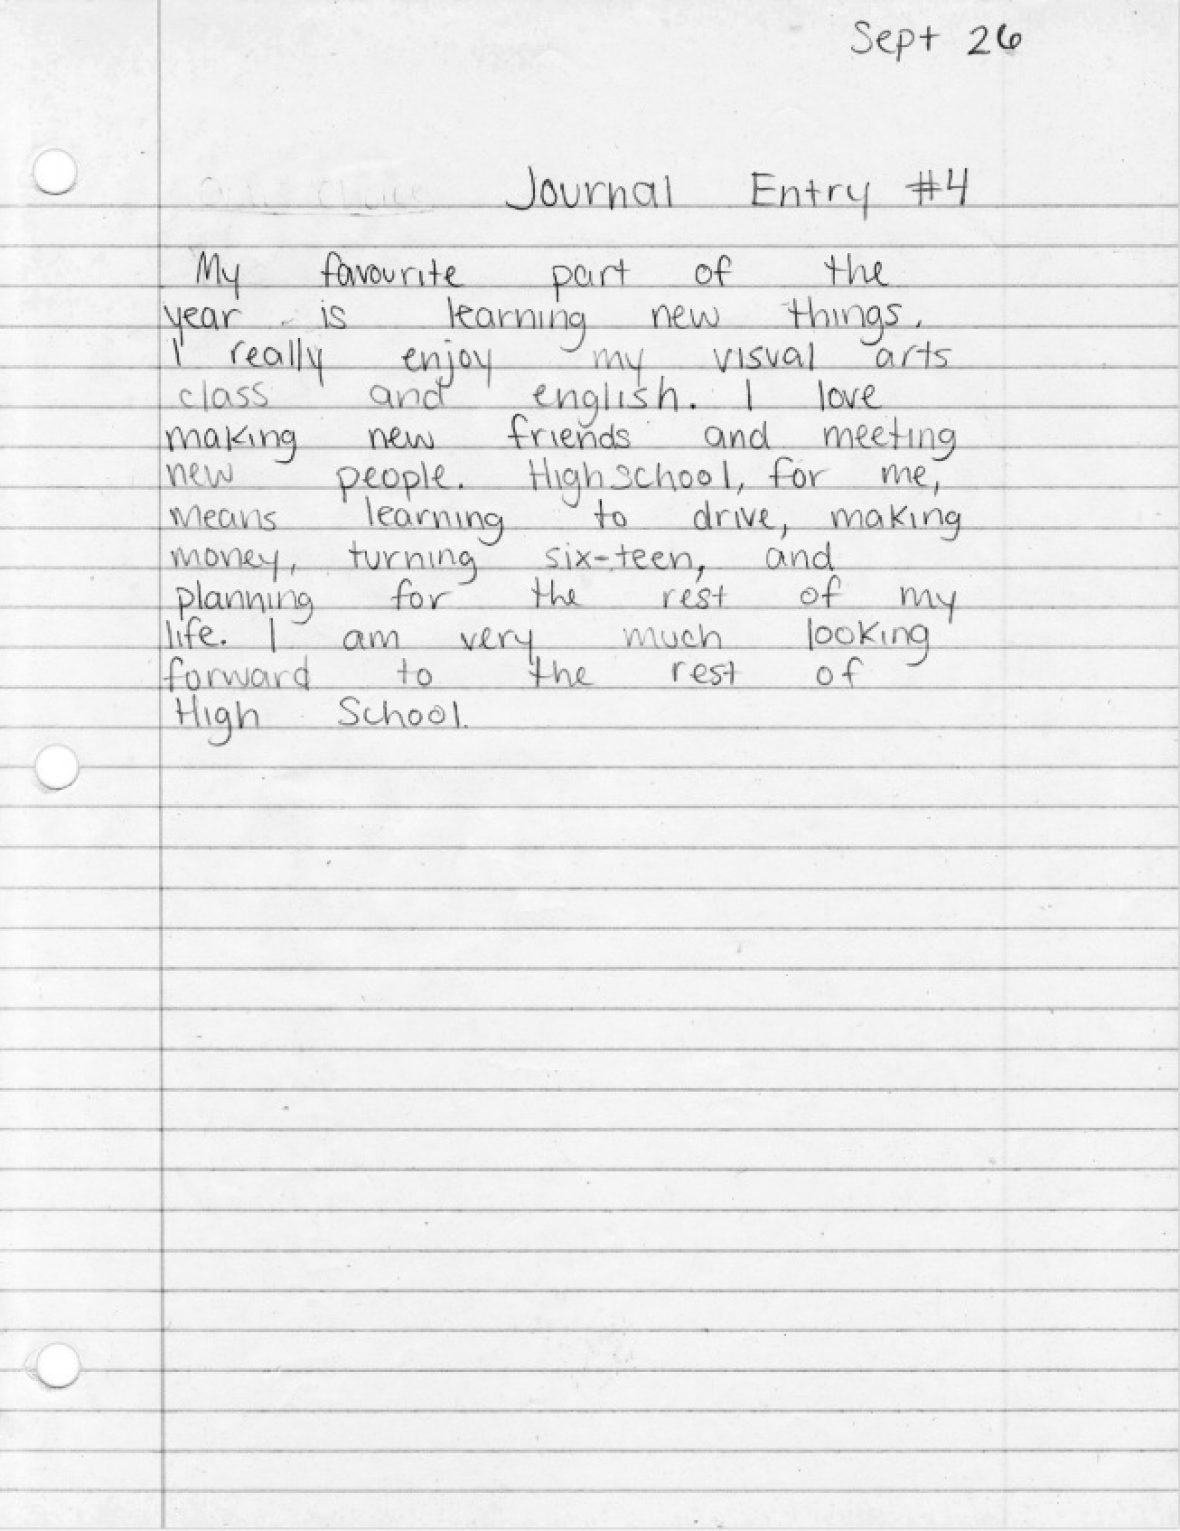 Sept 26
Journal Entry #4
My favourite part of the
year is learning new things.
I really enjoy my visual arts
class and english. I love
making new friends and meeting
new people. High school, for me,
means learning to drive, making
money, turning six-teen, and
planning for the rest of my
life. I am very much looking
forward to the rest of
High School.